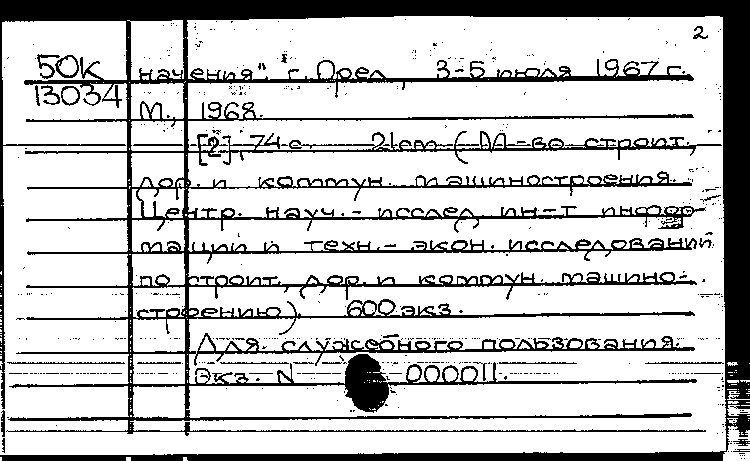 2
50К
13034
начения". г. Орел, 3-5 июля 1967 г.
М., 1968.
[2], 74 с. 21cm (М-во строит.,
дор. и коммун. машиностроения.
Центр. науч.- исслед. ин-т инфор-
мации и техн.- экон. исследований
по строит., дор. и коммун. машино-
строению). 600 экз.
Для служебного пользования.
Экз. N 000011.